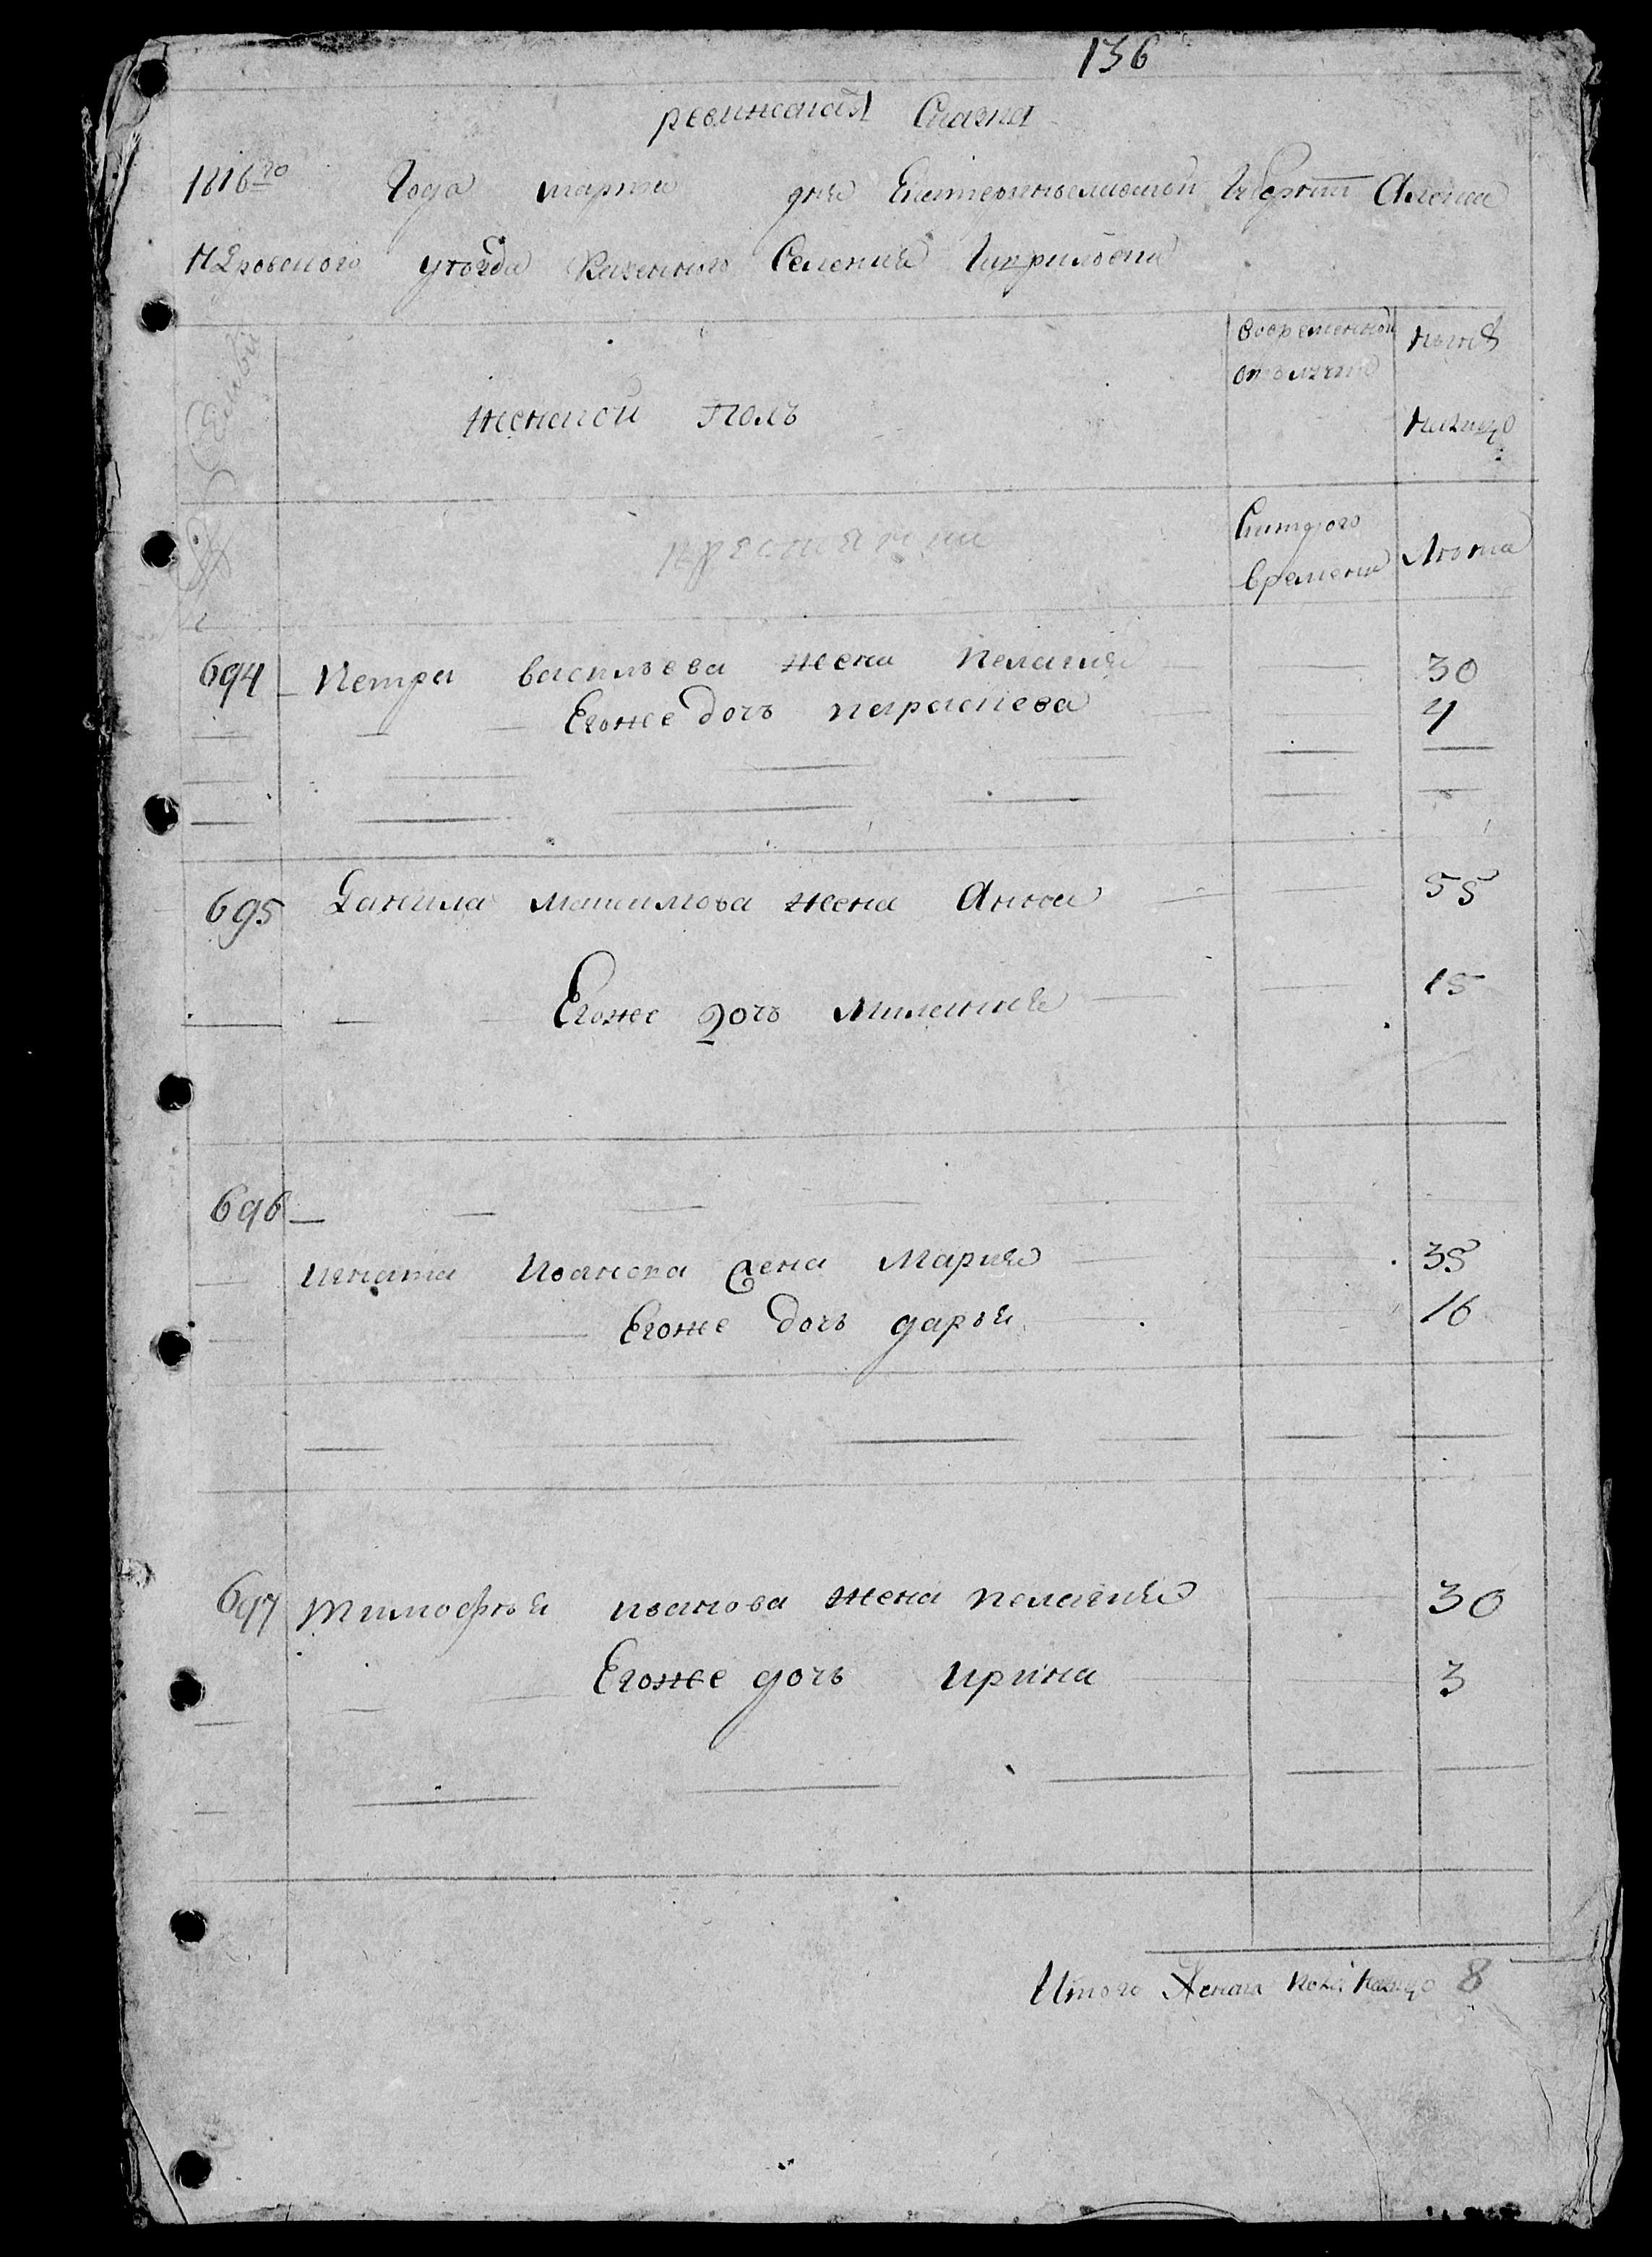 136
ревижская Сказка
1816го Года марта дня Екатеринославской Губернии Алекса
Ндровского уезда Казенного Селения Гавриловки
Семьи
женской Полъ
вовременной отълучке
ныне
налицо
крестьянъ
Скоторого времени
Лета
694 Петра васильева жена Пелагия 30
Егоже дочъ параскева 4
695 Данила Максимова жена Анна 55
Егоже дочъ Милания 15
696
игната Иванова жена Мария 35
Егоже дочъ дарья 16
697 тимофъя иванова жена пелагия 30
Егоже дочъ ирина 3
Итого Женска пола налицо 8